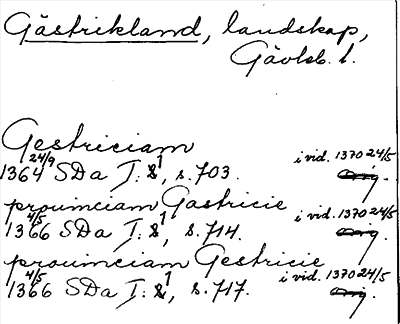 Gästrikland, landskap,
Gävleb. l.
Gestriciam
1364 24/9 SDa I: 1, s. 703. i vid. 1370 24/5
prouinciam Gastricie
1366 4/5 SDa I: 1, s. 714. i vid. 1370 24/5
prouinciam Gestricie
1366 4/5 SDa I: 1, s. 717. i vid. 1370 24/5